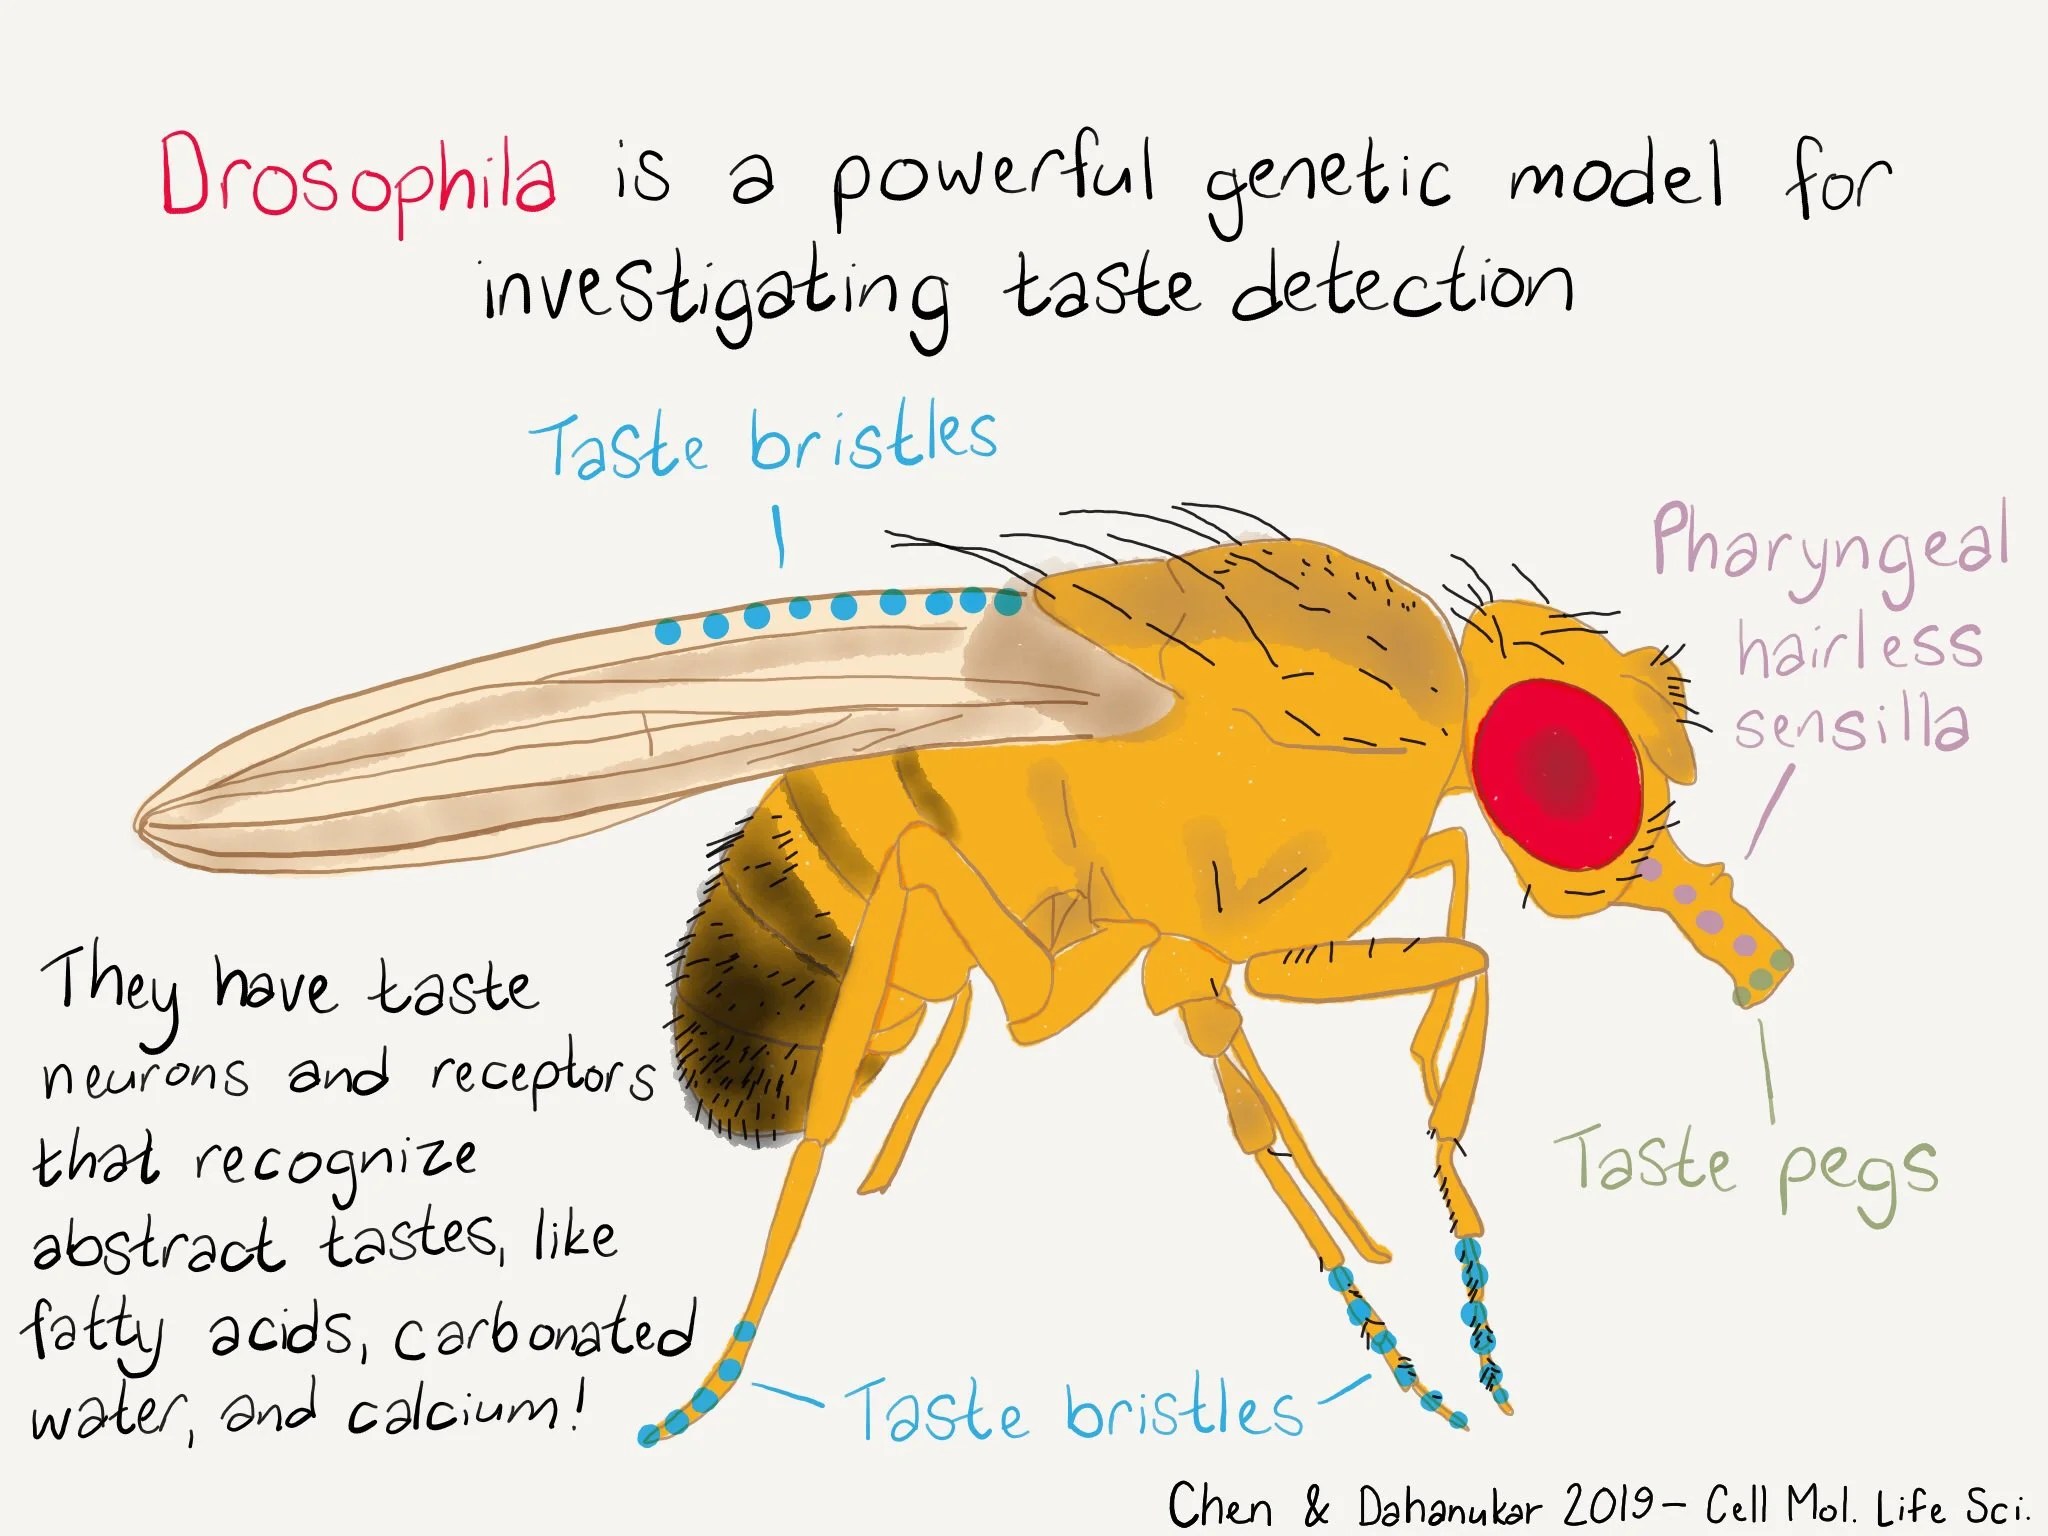 Drosophila is a powerful genetic model for
investigating taste detection
Taste bristles
Pharyngeal
hairless
sensilla
They have taste
neurons and receptors
that recognize
abstract tastes, like
fatty acids, carbonated
water, and calcium!
Taste pegs
Taste bristles
Chen & Dahanukar 2019 - Cell Mol. Life Sci.